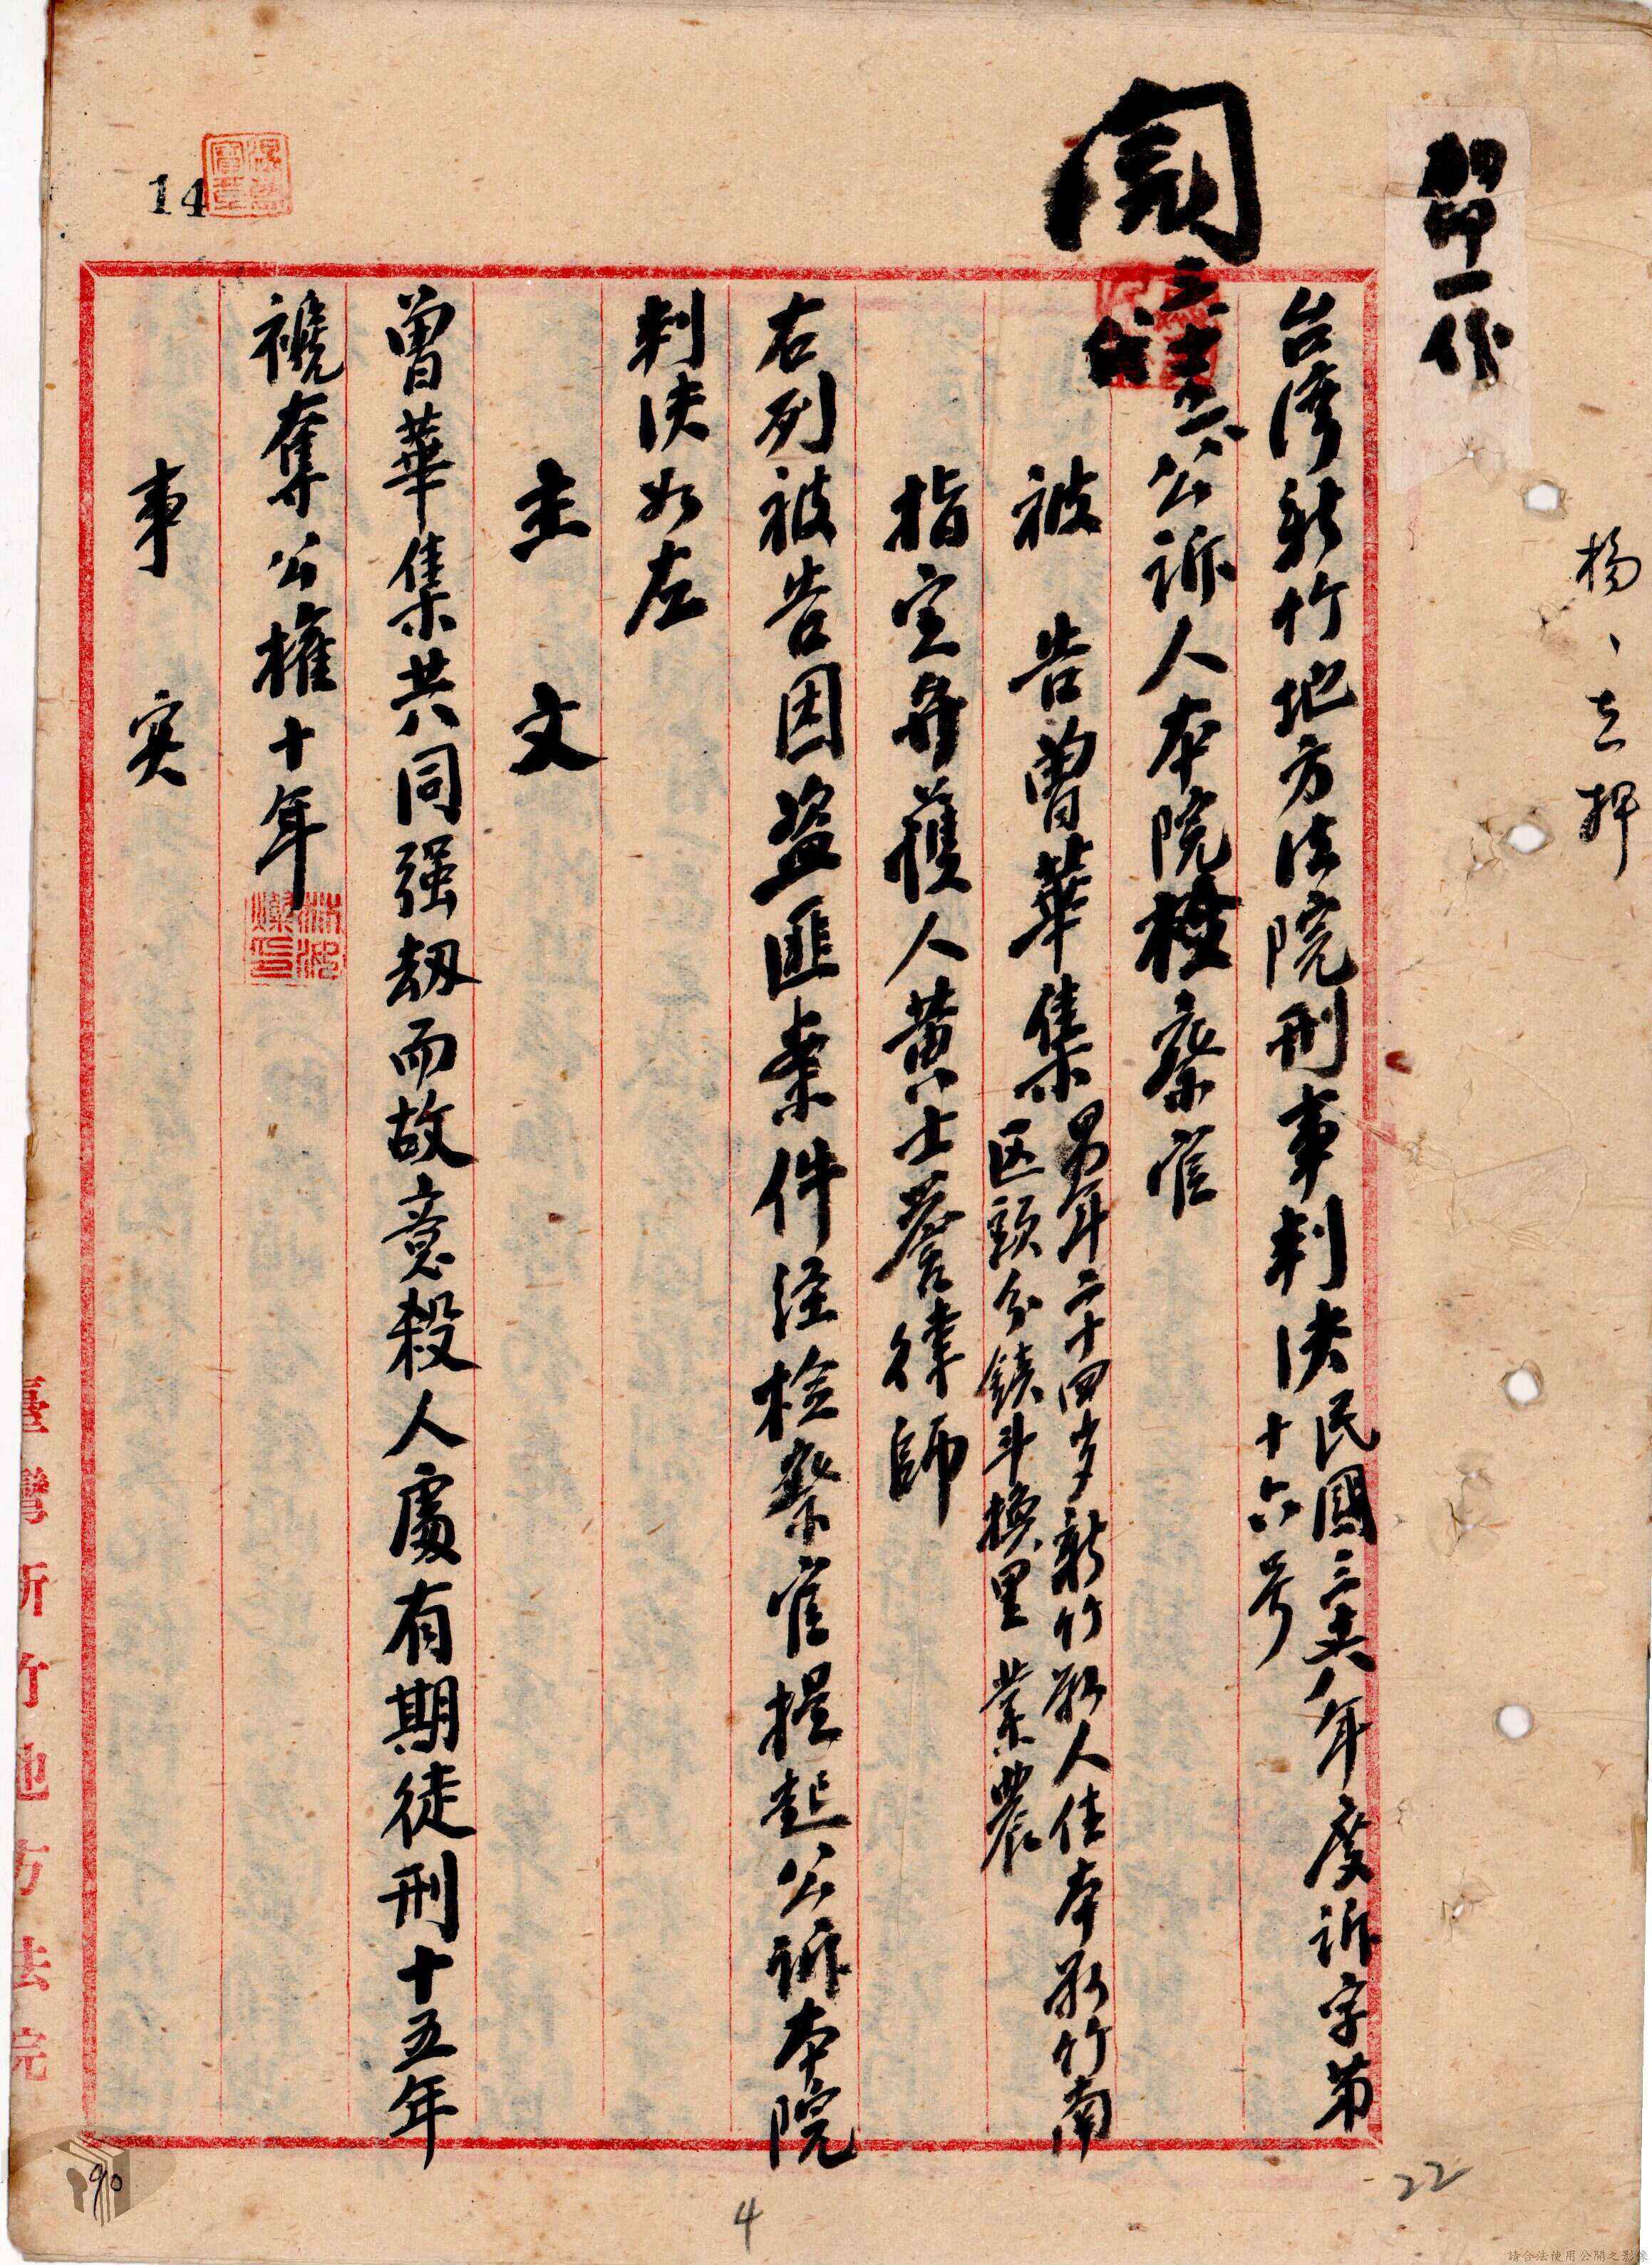 加印一份
楊、去押
台湾新竹地方法院刑事判决民國三十八年度訴字第
十六号
公訴人本院檢察官
被告曾華集男年二十四岁新竹縣人住本縣竹南
区頭份鎮斗換里 業農
指定弁護人黄士誉律師
右列被告因盜匪案件経検察官提起公訴本院
判决如左
主文
曾華集共同强刼而故意殺人處有期徒刑十五年
褫奪公權十年
事实
14
臺灣新竹地方法院
90
4
22
請合法使用公開之影像